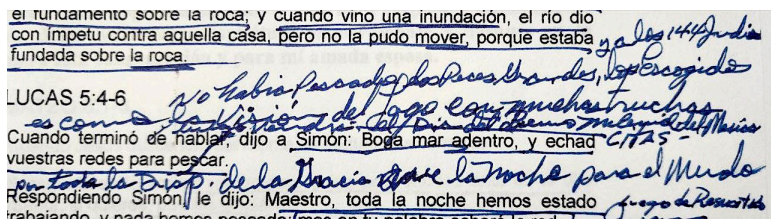 el fundamento sobre la roca; y cuando vino una inundación, el río dio
con ímpetu contra aquella casa, pero no la pudo mover, porque estaba
y a los 144
fundada sobre la roca.
No había Pescado, los Peces Grandes, los Escogidos
LUCAS 5:4-6
es como la Visión del Lago con muchas truchas
del Mesías
Cuando terminó de hablar, dijo a Simón: Boga mar adentro, y echad
CITAS-
vuestras redes para pescar.
en toda la Disp. de la Gracia que es la Noche para el Mundo
Respondiendo Simón, le dijo: Maestro, toda la noche hemos estado
trabajando, y nada hemos pescado; mas en tu palabra echaré la red.